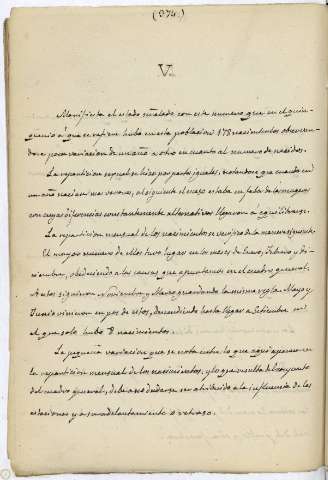 (374.)
V.
Manifiesta el estado señalado con este numero que en el quin-
quenio á que se refiere hubo en esta poblacion 178 nacimientos observan-
dose poca variacion de un año a otro en cuanto al numero de nacidos.
La reparticion sexual se hizo por partes iguales, notandose que cuando en
un año nacian mas varones, al siguiente el exceso estaba en favor de las mugeres
con cuyas diferencias constantemente alternativas llegaron á equilibrarse.
La reparticion mensual de los nacimientos se verifico de la manera siguiente.
El mayor numero de ellos tuvo lugar en los meses de Enero, Febrero y Di-
ciembre, obedeciendo a las causas que apuntamos en el cuadro general.
A estos siguieron Noviembre y Marzo guardando la misma regla Mayo y
Junio vinieron en pos de estos, descendiendo hasta llegar a Setiembre en
el que solo hubo 8 nacimientos.
La pequeña variacion que se nota entre lo que aqui aparece en
la reparticion mensual de los nacimientos, y lo que resulta del conjunto
del cuadro general, debe sin dudarse ser atribuido a la influencia de las
estaciones y a su adelantamiento o retraso.